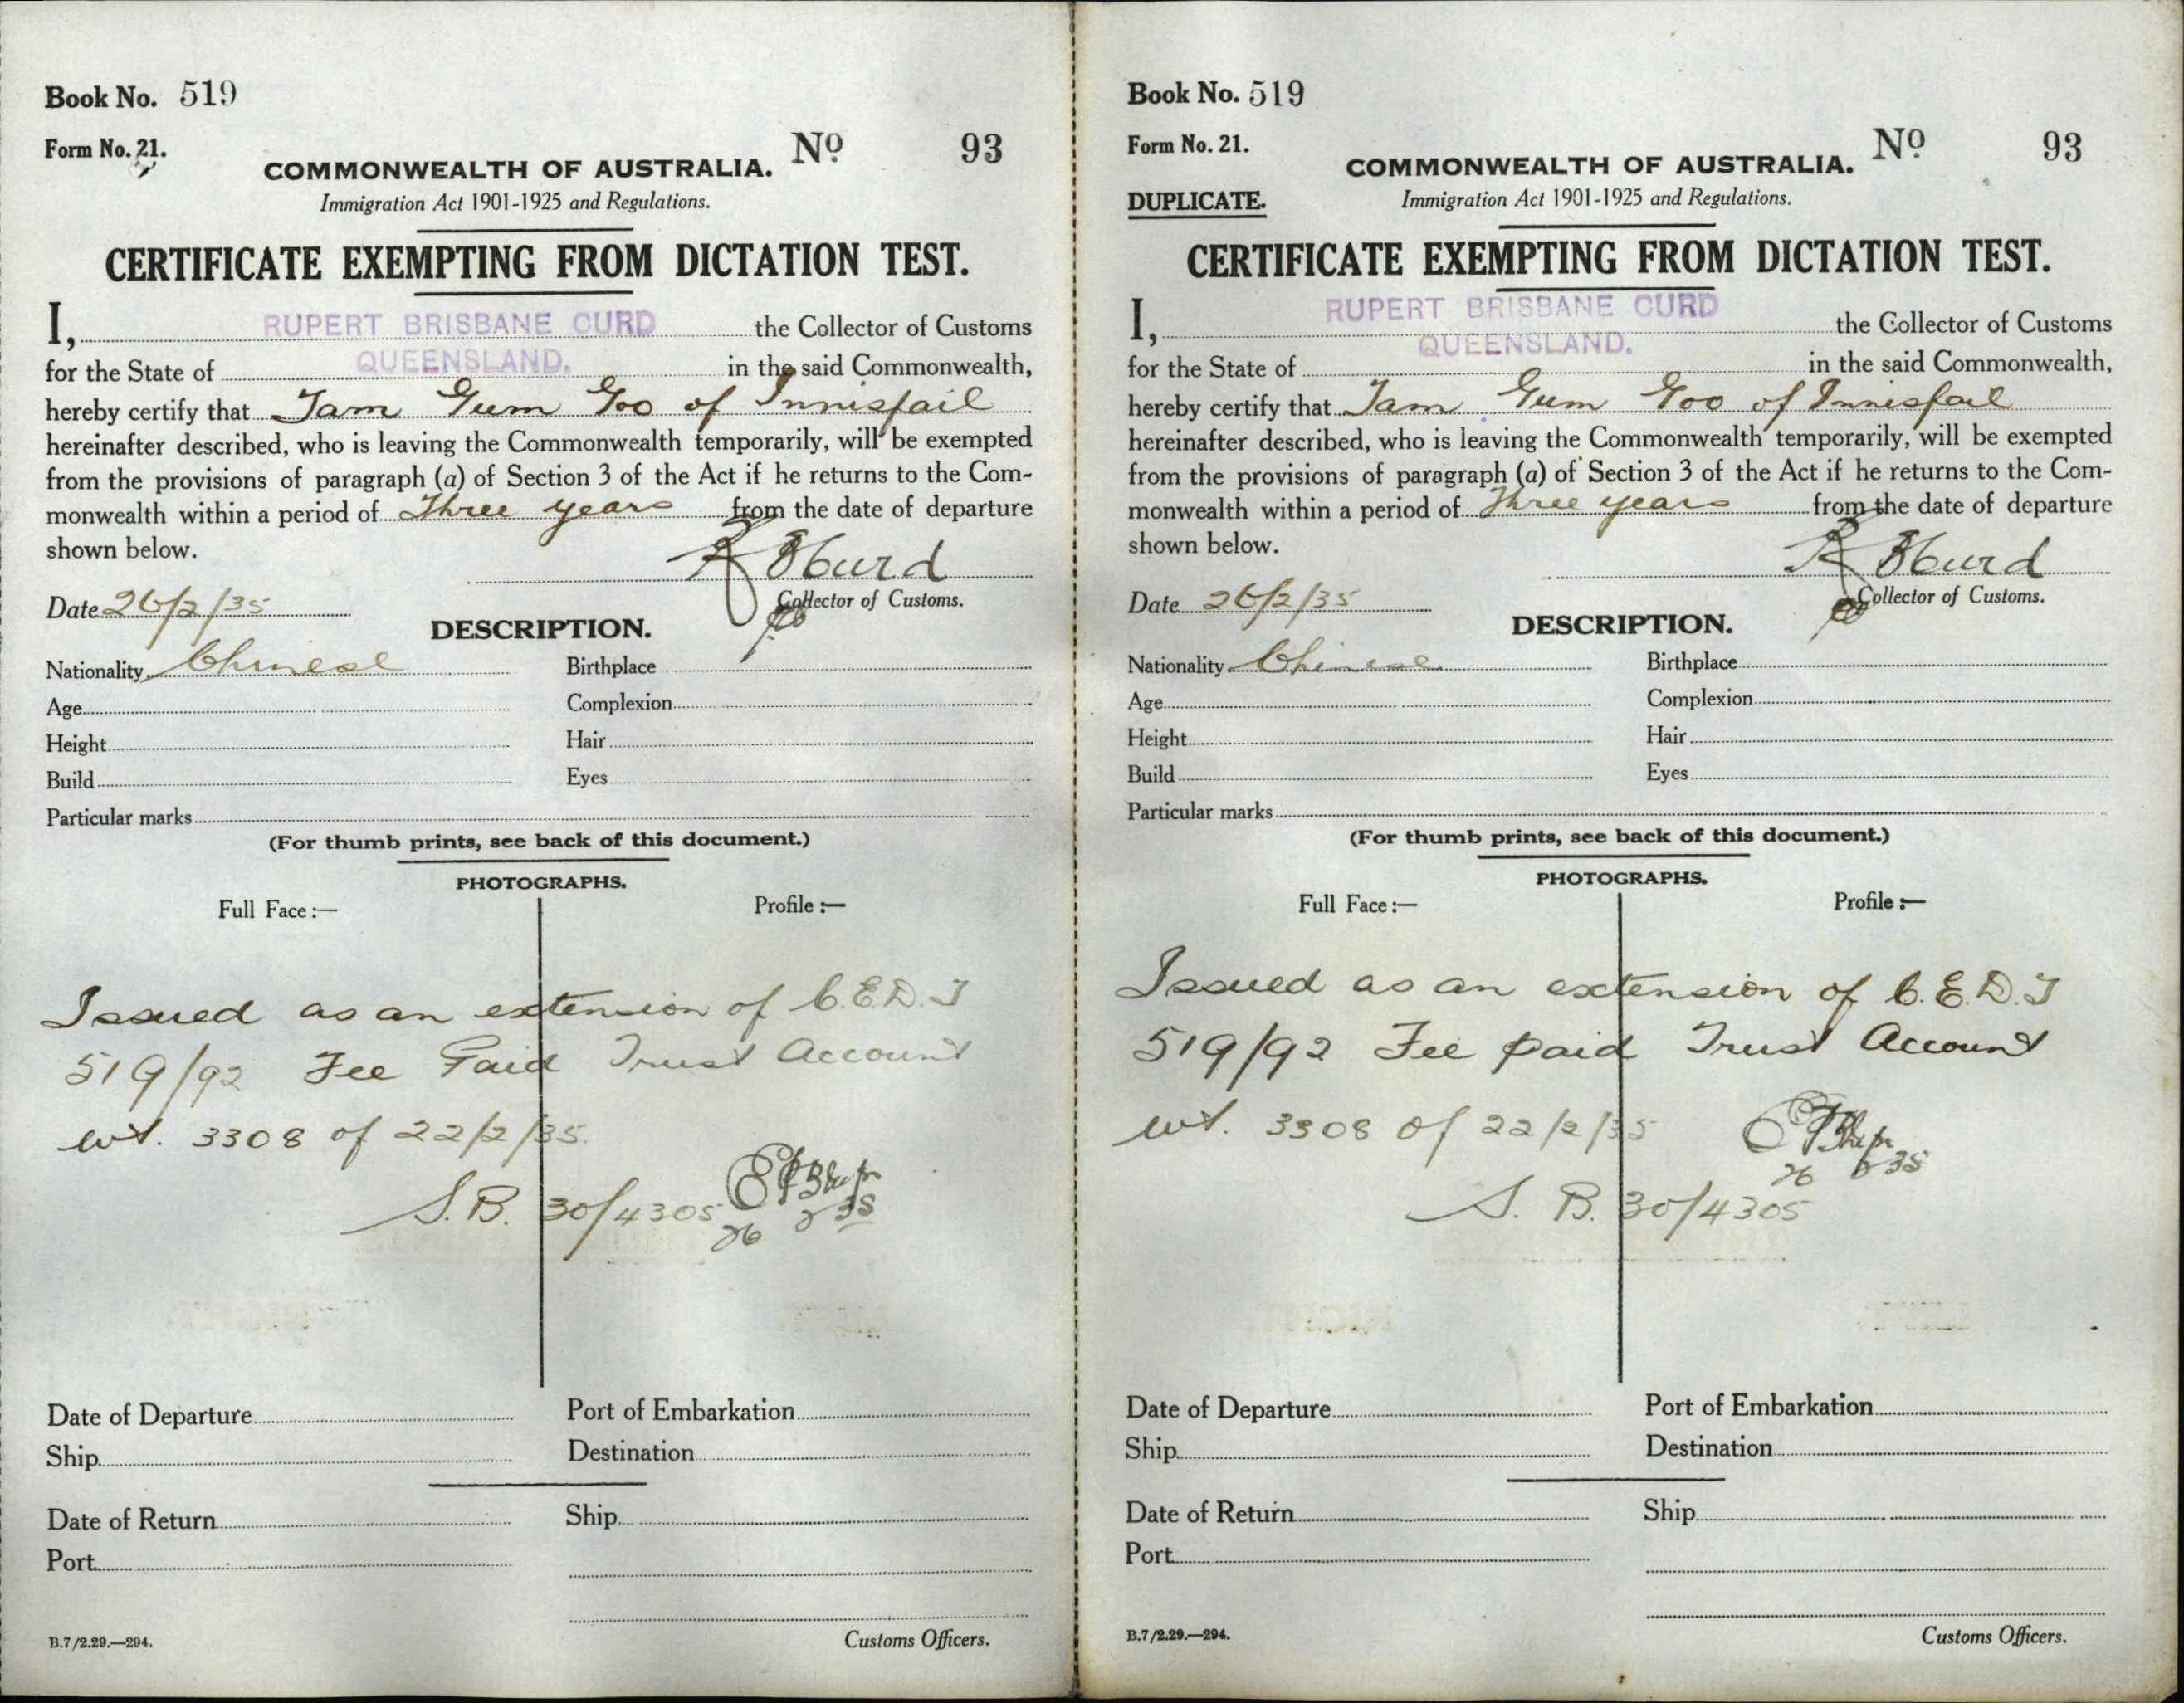 Book No. 519
Form No. 21.
No 93
COMMONWEALTH OF AUSTRALIA.
Immigration Act 1901-1925 and Regulations.
CERTIFICATE EXEMPTING FROM DICTATION TEST.
I, RUPERT BRISBANE CURD the Collector of Customs
for the State of QUEENSLAND. in the said Commonwealth,
hereby certify that Tam Gum Goo of Innisfail
hereinafter described, who is leaving the Commonwealth temporarily, will be exempted
from the provisions of paragraph (a) of Section 3 of the Act if he returns to the Com-
monwealth within a period of Three years from the date of departure
shown below.
R B Curd
Date 26/2/35
Collector of Customs.
DESCRIPTION.
Nationality Chinese Birthplace
Age Complexion
Height Hair
Build Eyes
Particular marks
(For thumb prints, see back of this document.)
PHOTOGRAPHS.
Full Face :— Profile :—
Issued as an extension of C.E.D.T
519/92 Fee Paid Trust Account
3308 of 22/2/35.
S.B. 30/4305
26 2 35
Date of Departure Port of Embarkation
Ship Destination
Date of Return Ship
Port
B.7/2.29.—204. Customs Officers.
Book No. 519
Form No. 21.
No 93
DUPLICATE.
COMMONWEALTH OF AUSTRALIA.
Immigration Act 1901-1925 and Regulations.
CERTIFICATE EXEMPTING FROM DICTATION TEST.
I, RUPERT BRISBANE CURD the Collector of Customs
for the State of QUEENSLAND. in the said Commonwealth,
hereby certify that Tam Gum Goo of Innisfail
hereinafter described, who is leaving the Commonwealth temporarily, will be exempted
from the provisions of paragraph (a) of Section 3 of the Act if he returns to the Com-
monwealth within a period of Three years from the date of departure
shown below.
R B Curd
Date 26/2/35
Collector of Customs.
DESCRIPTION.
Nationality Chinese Birthplace
Age Complexion
Height Hair
Build Eyes
Particular marks
(For thumb prints, see back of this document.)
PHOTOGRAPHS.
Full Face :— Profile :—
Issued as an extension of C.E.D.T
519/92 Fee paid Trust Account
3308 of 22/2/35
26 2 35
S. B. 30/4305
Date of Departure Port of Embarkation
Ship Destination
Date of Return Ship
Port
B.7/2.29.—204. Customs Officers.